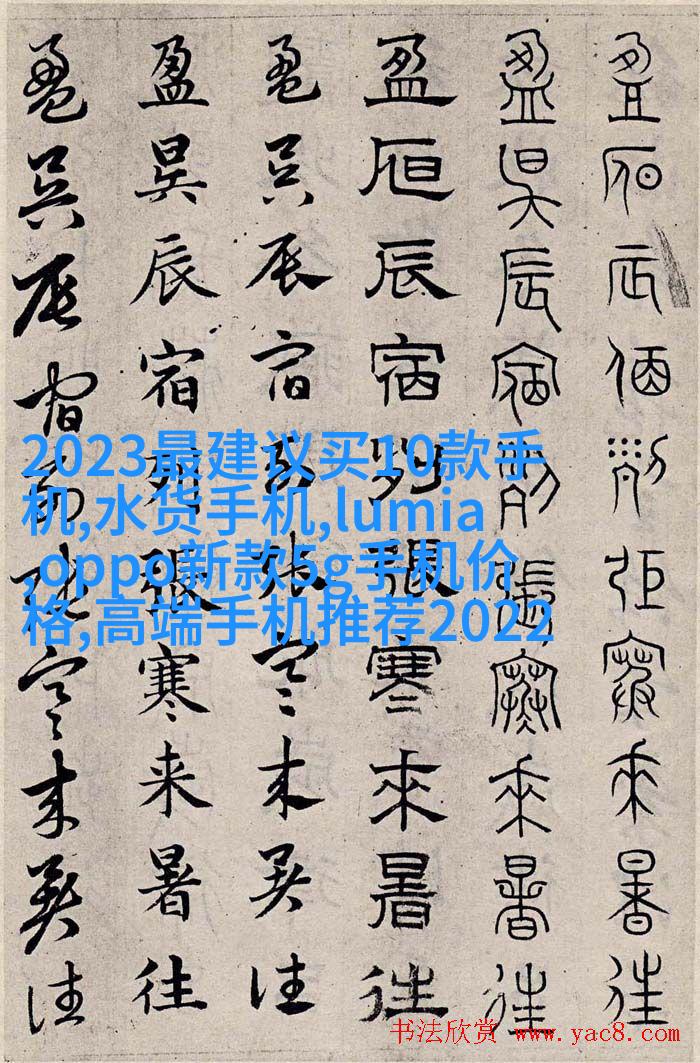 盈昃辰宿列張寒來暑往
盈昃辰宿列張寒來暑往
盈昃辰宿列張寒來暑往
盈昃辰宿列張寒来暑往
盈昃辰宿列張寒来暑往
盈昃辰宿列張寒来暑往
2023最建议买10款手
机,水货手机,lumia
,oppo新款5g手机价
格,高端手机推荐2022
书法欣赏 www.yac8.com